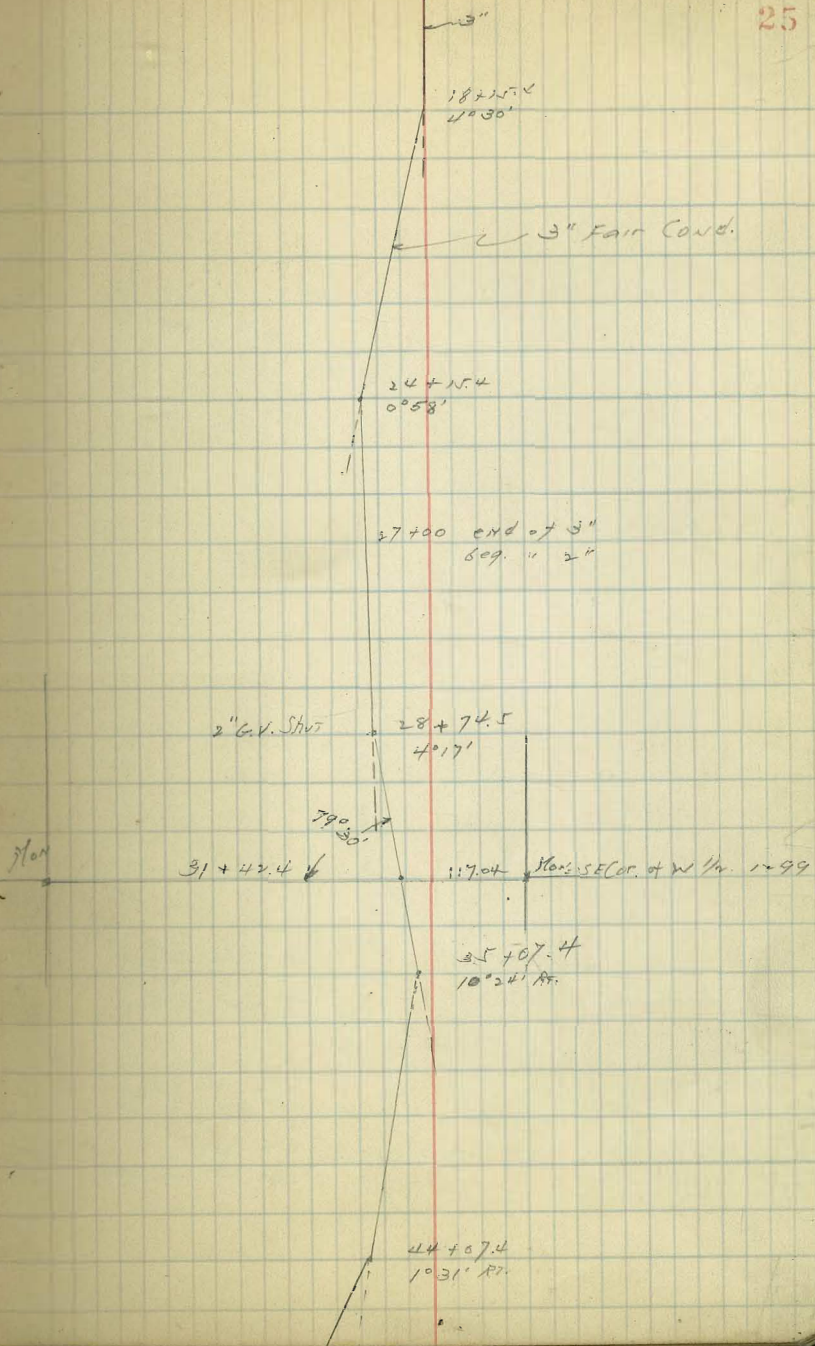 25
3"
18+15.4
4°30'
3" Fair Cond.
24+15.4
0°58'
27+00 end of 3"
beg. " 2"
2" G.V. Shut
28+74.5
4°17'
79°
30'
Mon
31+42.4
117.04
Mon. SE Cor. of W 1/2
35+07.4
10°24' Rt.
44+07.4
1°31' Rt.